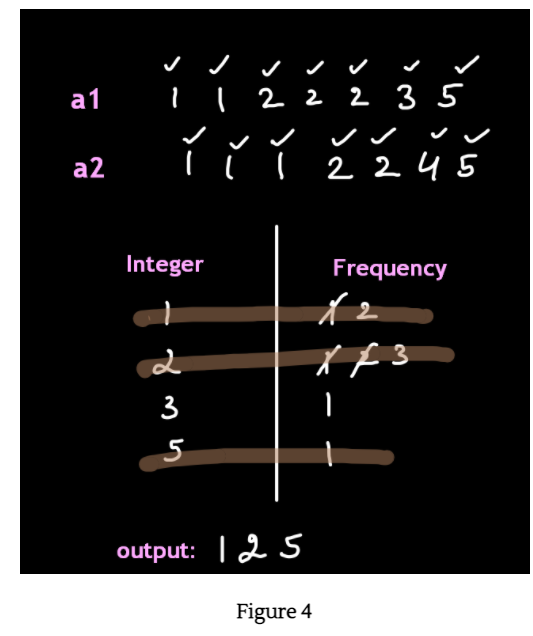 a1 1 1 2 2 2 3 5
a2 1 1 1 2 2 4 5
Integer Frequency
1 1 2
2 1 2 3
3 1
5 1
output: 1 2 5
Figure 4